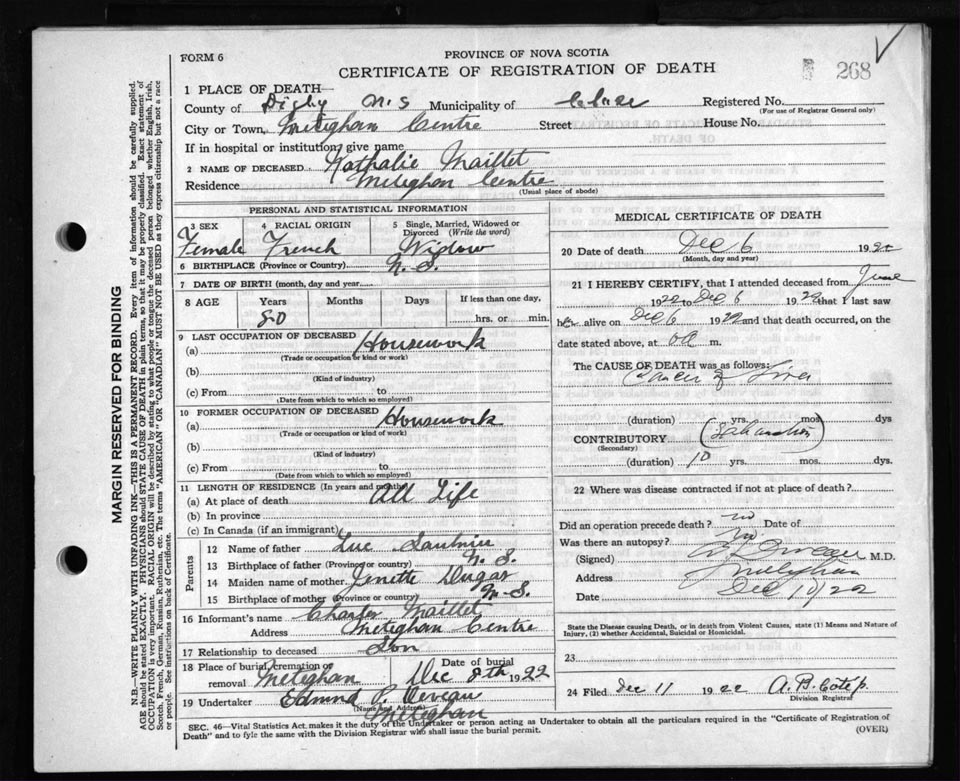 FORM 6
PROVINCE OF NOVA SCOTIA
CERTIFICATE OF REGISTRATION OF DEATH
268
1 PLACE OF DEATH—
County of Digby N.S Municipality of Clare Registered No.
(For use of Registrar General only)
City or Town, Meteghan Centre Street House No.
If in hospital or institution, give name
2 NAME OF DECEASED Nathalie Maillet
Residence Meteghan Centre
(Usual place of abode)
PERSONAL AND STATISTICAL INFORMATION
3 SEX 4 RACIAL ORIGIN 5 Single, Married, Widowed or Divorced (Write the word)
Female French Widow
6 BIRTHPLACE (Province or Country) N. S.
7 DATE OF BIRTH (month, day and year)
8 AGE Years Months Days If less than one day,
80 hrs. or min.
9 LAST OCCUPATION OF DECEASED
(a) Housework
(Trade or occupation or kind of work)
(b)
(Kind of industry)
(c) From to
(Date from which to which so employed)
10 FORMER OCCUPATION OF DECEASED
(a) Housework
(Trade or occupation or kind of work)
(b)
(Kind of industry)
(c) From to
(Date from which to which so employed)
11 LENGTH OF RESIDENCE (In years and months)
(a) At place of death All Life
(b) In province
(c) In Canada (if an immigrant)
Parents
12 Name of father Luc Saulnier
13 Birthplace of father (Province or country) N. S.
14 Maiden name of mother Dugas
15 Birthplace of mother (Province or country) N. S.
16 Informant's name Charles Maillet
Address Meteghan Centre
17 Relationship to deceased Son
18 Place of burial, cremation or removal Meteghan Date of burial Dec 8th 1922
19 Undertaker Edmund P. Deveau
(Name and Address) Meteghan
MEDICAL CERTIFICATE OF DEATH
20 Date of death Dec 6 1922
(Month, day and year)
21 I HEREBY CERTIFY, that I attended deceased from June
1922 to Dec 6 1922 that I last saw
her alive on Dec 6 1922 and that death occurred, on the
date stated above, at m.
The CAUSE OF DEATH was as follows:
Cancer of Liver
(duration) yrs. mos. dys
CONTRIBUTORY
(Secondary)
(duration) 10 yrs. mos. dys.
22 Where was disease contracted if not at place of death?
Did an operation precede death? no Date of
Was there an autopsy? no
(Signed) M.D.
Address Meteghan
Date Dec 10/22
State the Disease causing Death, or in death from Violent Causes, state (1) Means and Nature of
Injury, (2) whether Accidental, Suicidal or Homicidal.
23
24 Filed Dec 11 1922
Division Registrar
SEC. 46—Vital Statistics Act, makes it the duty of the Undertaker or person acting as Undertaker to obtain all the particulars required in the "Certificate of Registration of
Death" and to fyle the same with the Division Registrar who shall issue the burial permit.
(OVER)
MARGIN RESERVED FOR BINDING
N.B.—WRITE PLAINLY WITH UNFADING INK—THIS IS A PERMANENT RECORD. Every item of information should be carefully supplied.
AGE should be stated EXACTLY. PHYSICIANS should STATE CAUSE OF DEATH in plain terms, so that it may be properly classified. Exact statement of
OCCUPATION is very important. RACIAL ORIGIN will be described by stating to what people or tongue the deceased person belonged whether English, Irish,
Scotch, French, German, Russian, Ruthenian, etc. The terms "AMERICAN" or "CANADIAN" MUST NOT BE USED as they express citizenship but not a race
or people. See instructions on back of Certificate.